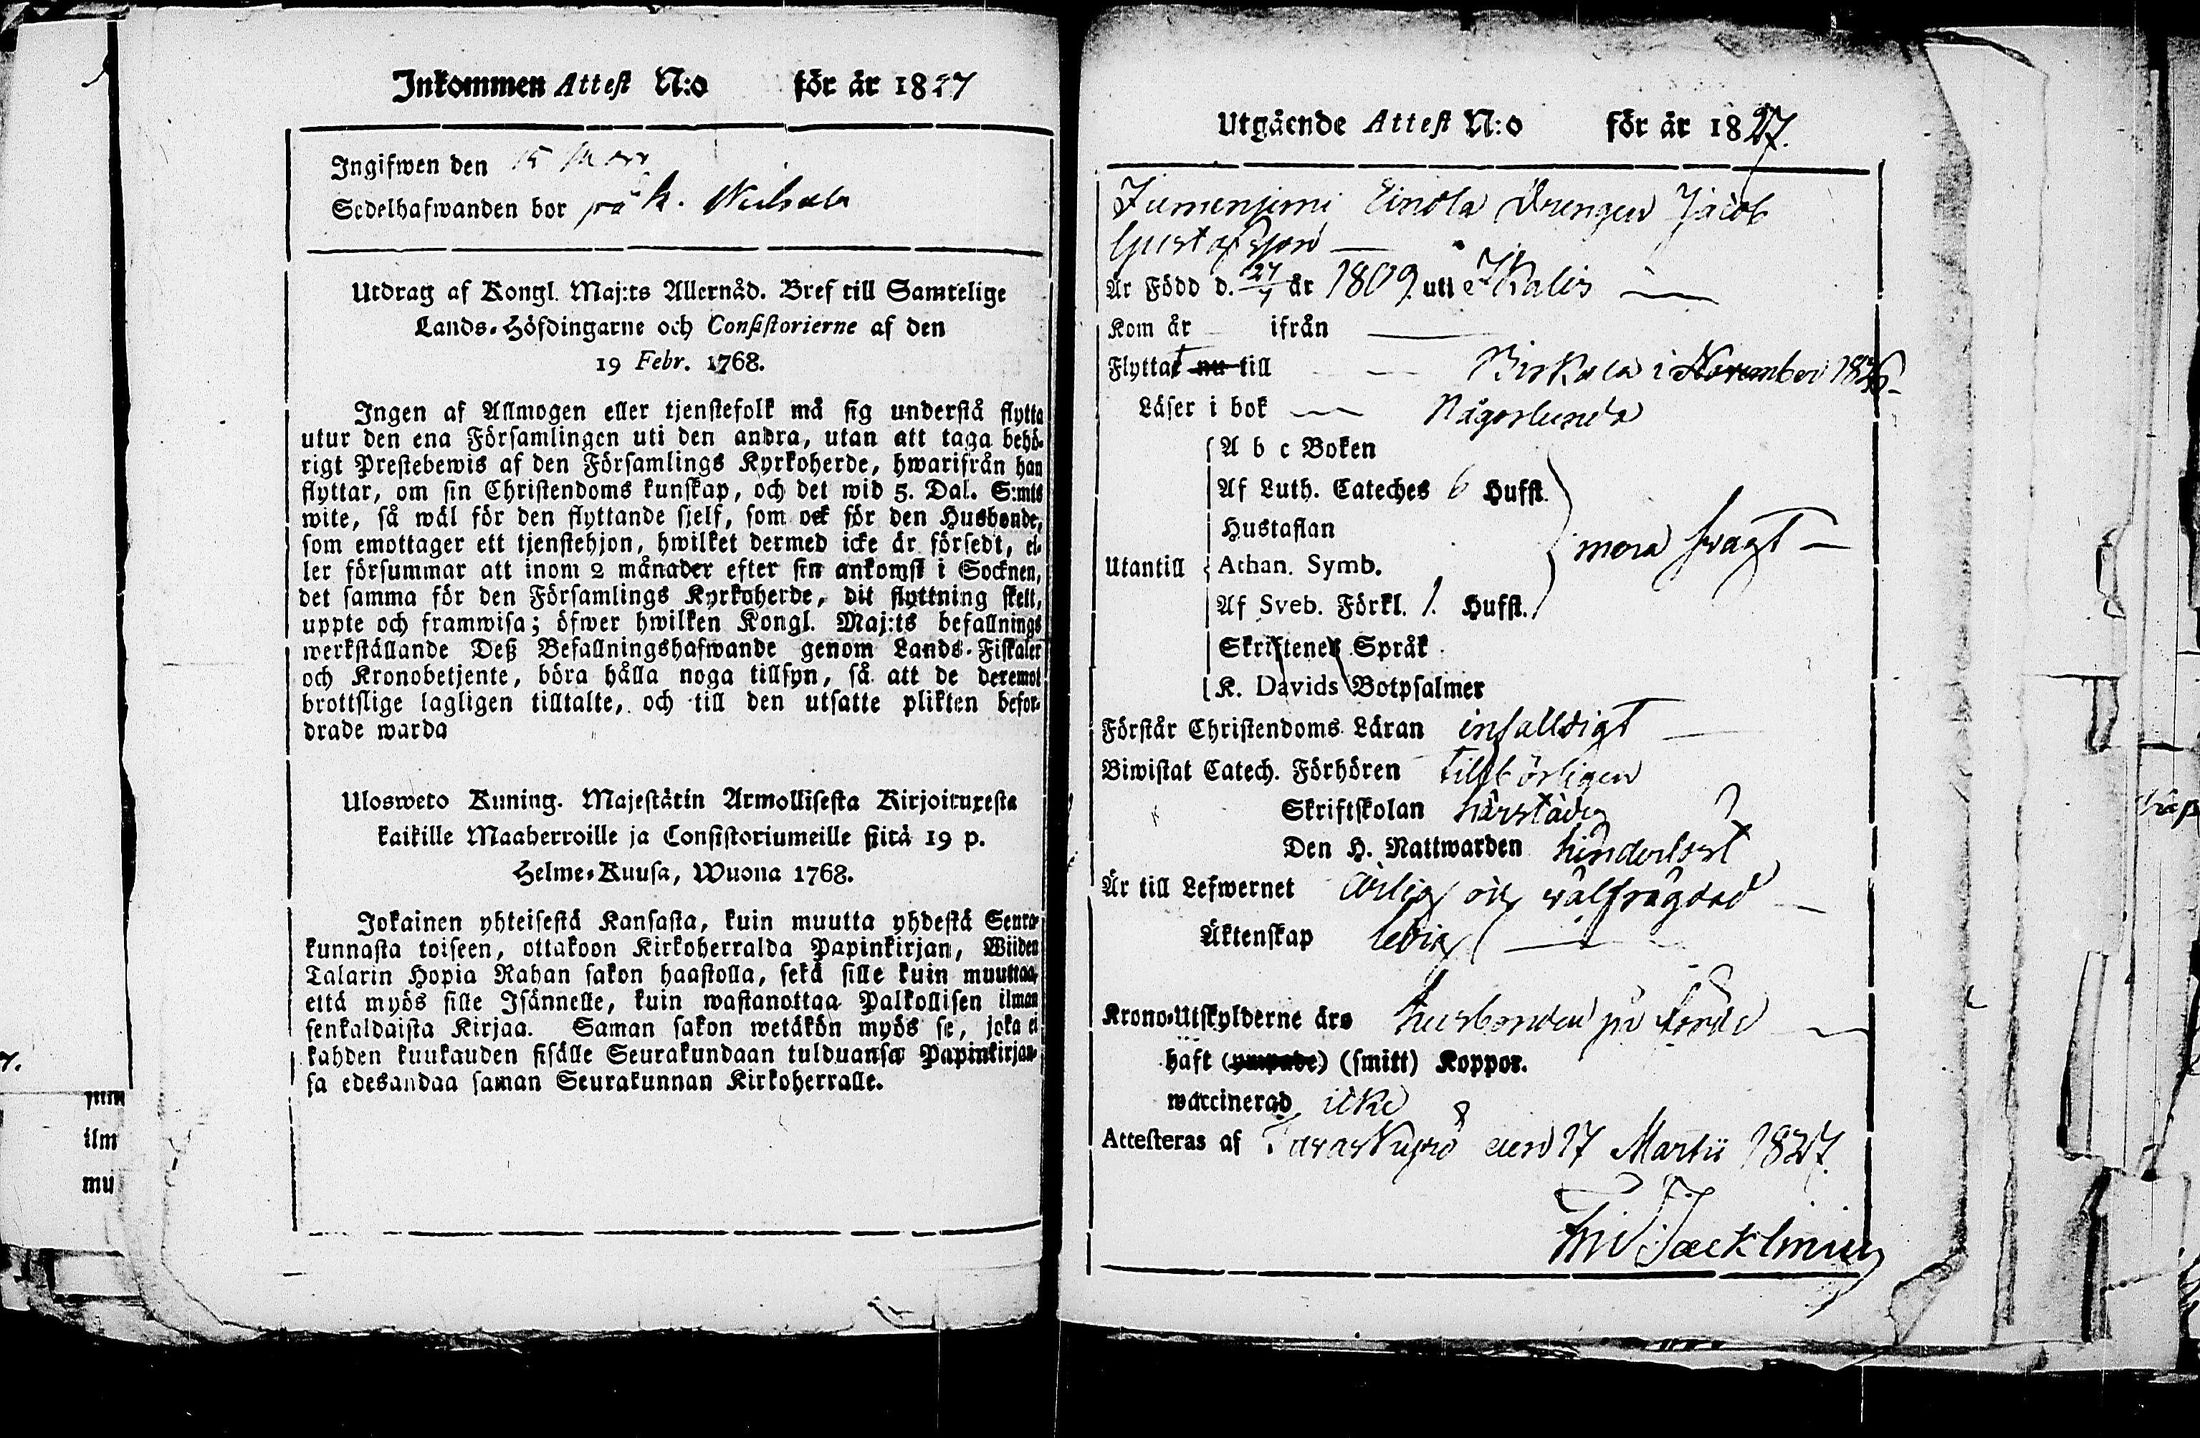 Inkommen Attest N:o för år 1827
Ingifwen den 15
Sedelhafwanden bor på
Utdrag af Kongl. Maj:ts Allernåd. Bref till Samtelige
Lands-Höfdingarne och Consistorierne af den
19 Febr. 1768.
Ingen af Allmogen eller tjenstefolk må sig understå flytta
utur den ena Församlingen uti den andra, utan att taga behö-
rigt Prestebewis af den Församlings Kyrkoherde, hwarifrån han
flyttar, om sin Christendoms kunskap, och det wid 5. Dal. S:mts
wite, så wäl för den flyttande sjelf, som ock för den Husbonde,
som emottager ett tjenstehjon, hwilket dermed icke är försedt, el-
ler försummar att inom 2 månader efter sin ankomst i Socknen,
det samma för den Församlings Kyrkoherde, dit flyttning skett,
uppte och framwisa; öfwer hwilken Kongl. Maj:ts befallnings
werkställande Deß Befallningshafwande genom Lands-Fiskaler
och Kronobetjente, böra hålla noga tillsyn, så att de deremot
brottslige lagligen tilltalte, och till den utsatte plikten befor-
drade warda
Ulosweto Kuning. Majestätin Armollisesta Kirjoituxesta
kaikille Maaherroille ja Consistoriumeille siitä 19 p.
Helme-Kuusa, Wuona 1768.
Jokainen yhteisestä Kansasta, kuin muutta yhdestä Seura-
kunnasta toiseen, ottakoon Kirkoherralda Papinkirjan, Wiiden
Talarin Hopia Rahan sakon haastolla, sekä sille kuin muuttaa,
että myös sille Isännelle, kuin wastanottaa Palkollisen ilman
senkaldaista Kirjaa. Saman sakon wetäkön myös se, joka ei
kahden kuukauden sisälle Seurakundaan tulduansa Papinkirjan-
sa edesandaa saman Seurakunnan Kirkoherralle.
Utgående Attest N:o för år 1827.
Einola Drengen Jacob
Gustafsson
Är Född d. 27 år 1809. uti Ikalis
Kom år ifrån
Flyttat nu till Birkala i November 1826
Läser i bok någorlunda
A b c Boken
Af Luth. Cateches 6 Hufst.
Hustaflan
Utantill Athan. Symb. mera swagt
Af Sveb. Förkl. 1. Hufst.
Skriftenes Språk
K. Davids Botpsalmer
Förstår Christendoms Läran enfaldigt
Biwistat Catech. Förhören tillbörligen
Skriftskolan härstädes
Den H. Nattwarden hinderlöst
Är till Lefwernet ärlig och wälfrägdad
Äktenskap ledig
Krono-Utskylderne äro husbonden på
haft (ympade) (smitt) Koppor.
waccinerad icke
Attesteras af Tavastkyro den 17 Martii 1827.